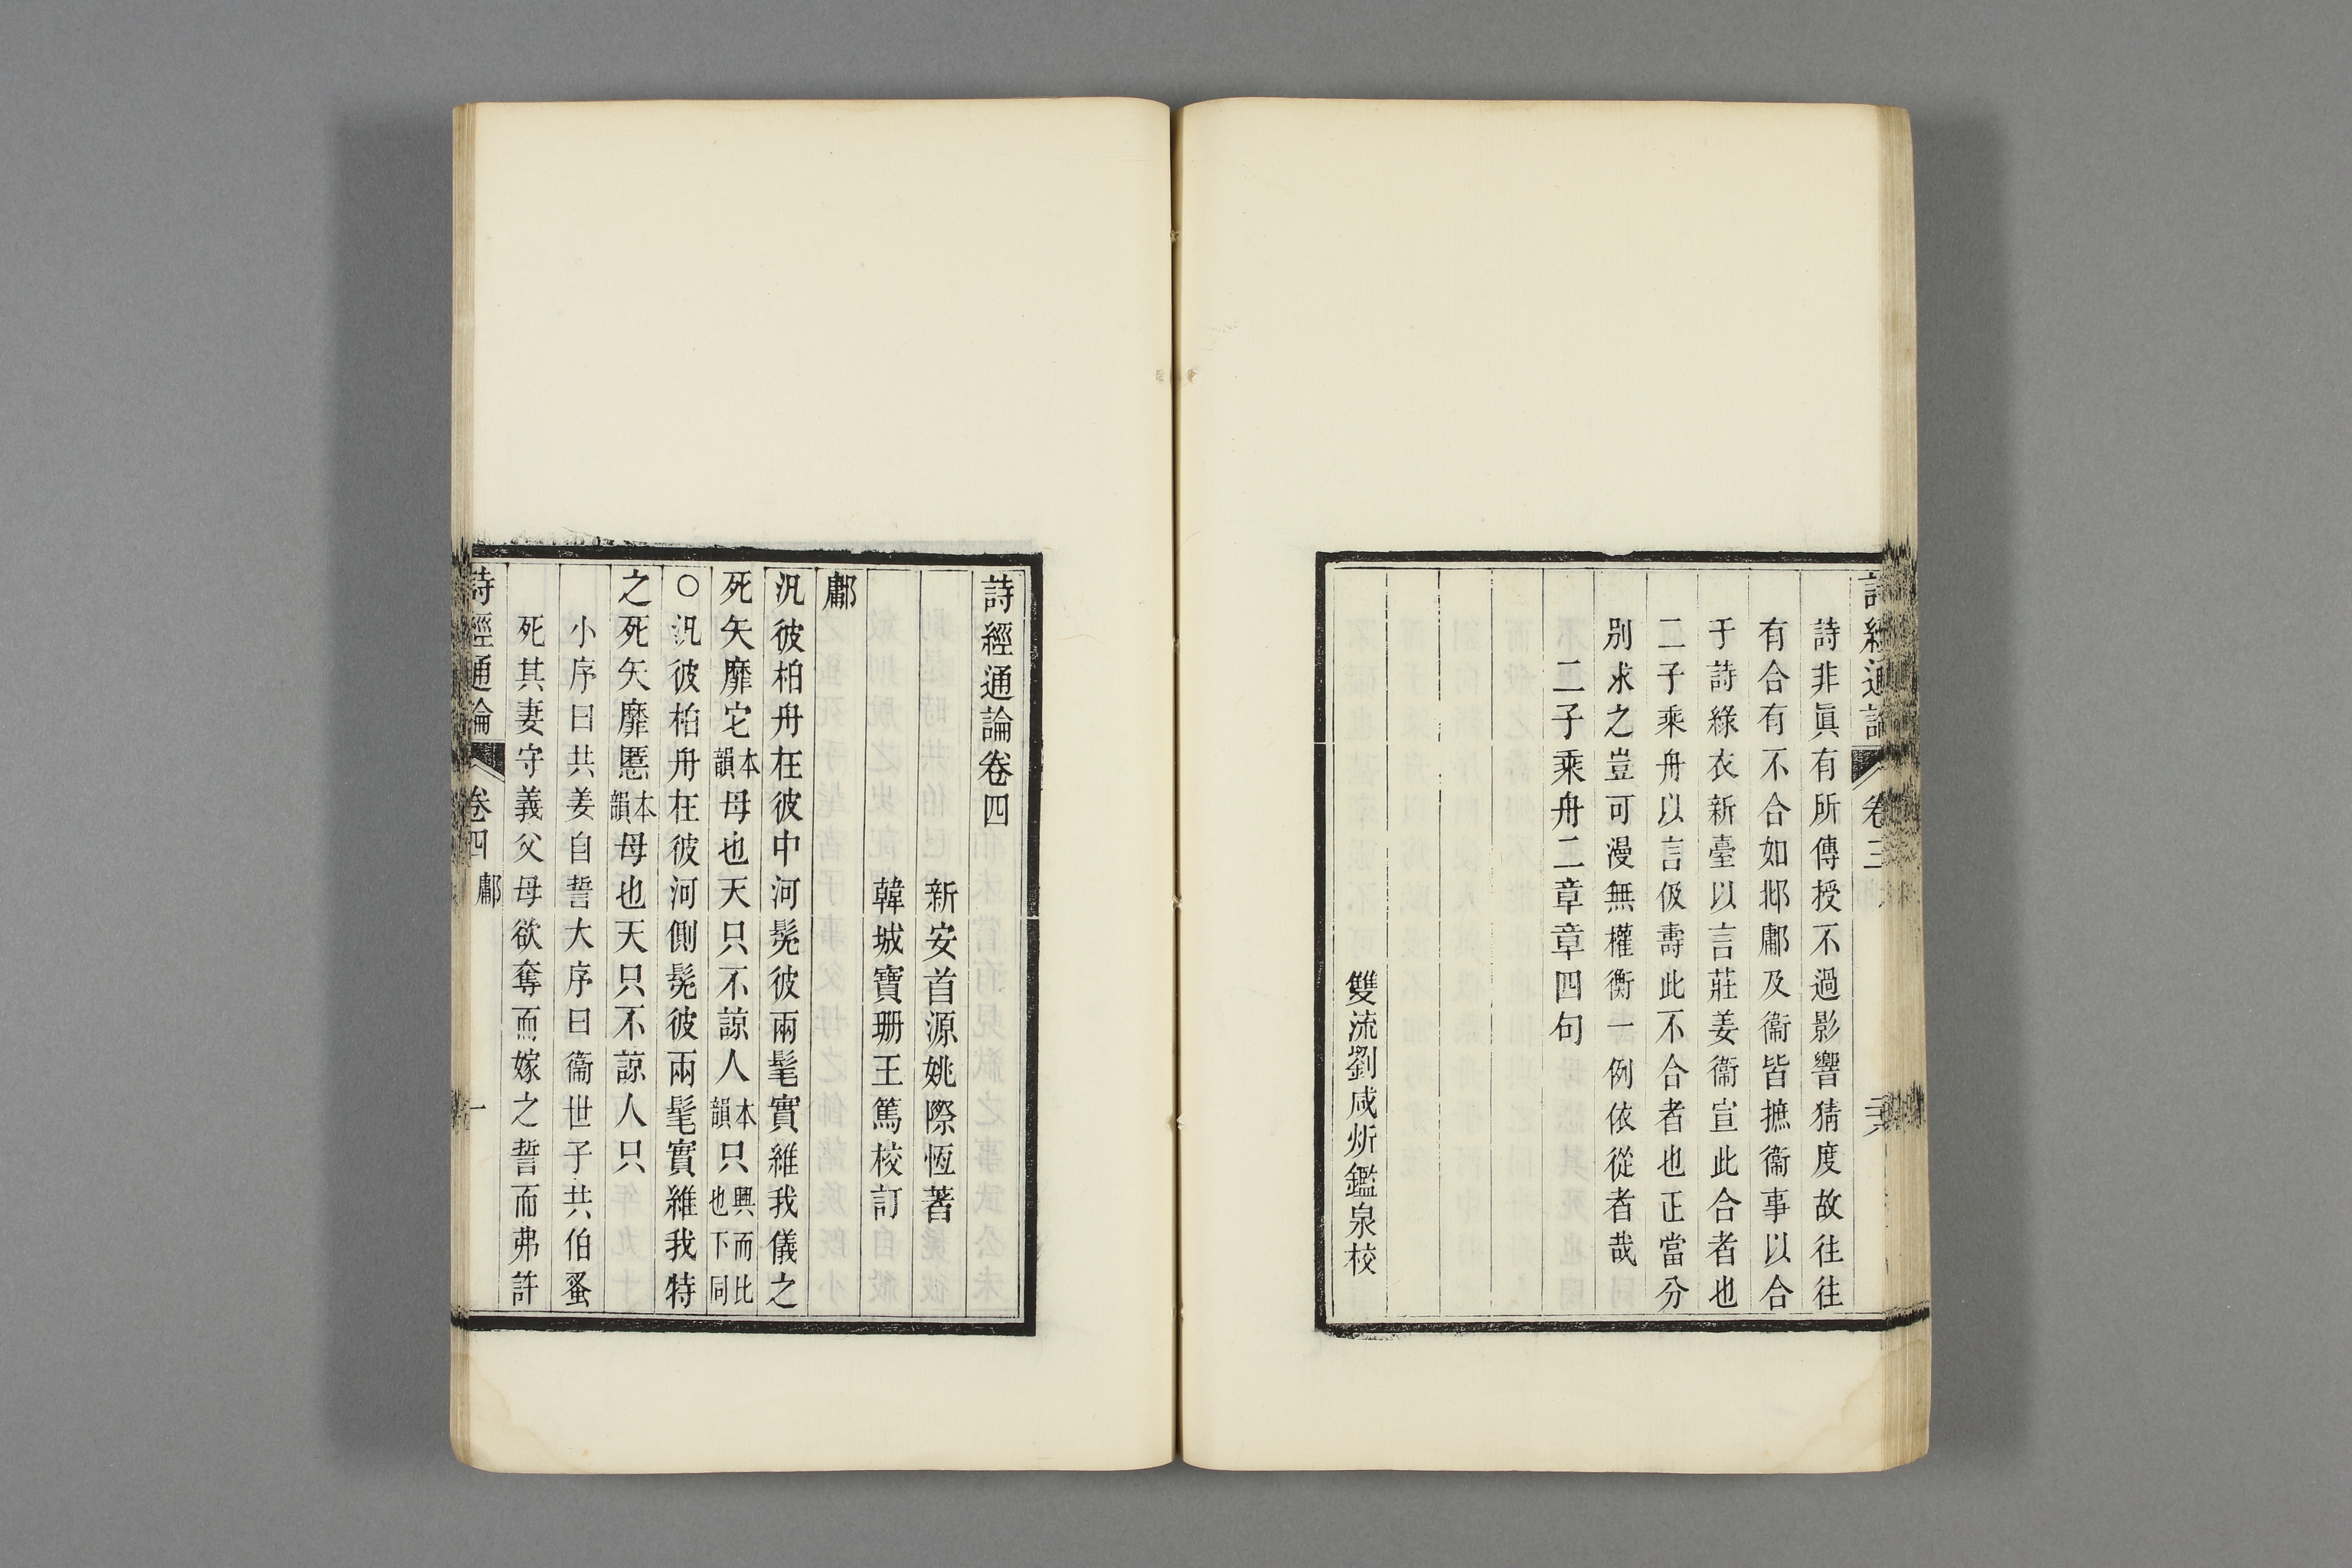 詩經通論
卷三
詩非眞有所傳授不過影響猜度故往往
有合有不合如邶鄘及衞皆摭衞事以合
于詩綠衣新臺以言莊姜衞宣此合者也
二子乘舟以言伋壽此不合者也正當分
別求之豈可漫無權衡一例依從者哉
二子乘舟二章章四句
雙流劉咸炘鑑泉校
詩經通論卷四
新安首源姚際恆著
韓城寶珊王篤校訂
鄘
汎彼柏舟在彼中河髧彼兩髦實維我儀之
死矢靡它本韻母也天只不諒人本韻只興而比也下同
○汎彼柏舟在彼河側髧彼兩髦實維我特
之死矢靡慝本韻母也天只不諒人只
小序曰共姜自誓大序曰衞世子共伯蚤
死其妻守義父母欲奪而嫁之誓而弗許
詩經通論
卷四
鄘
一